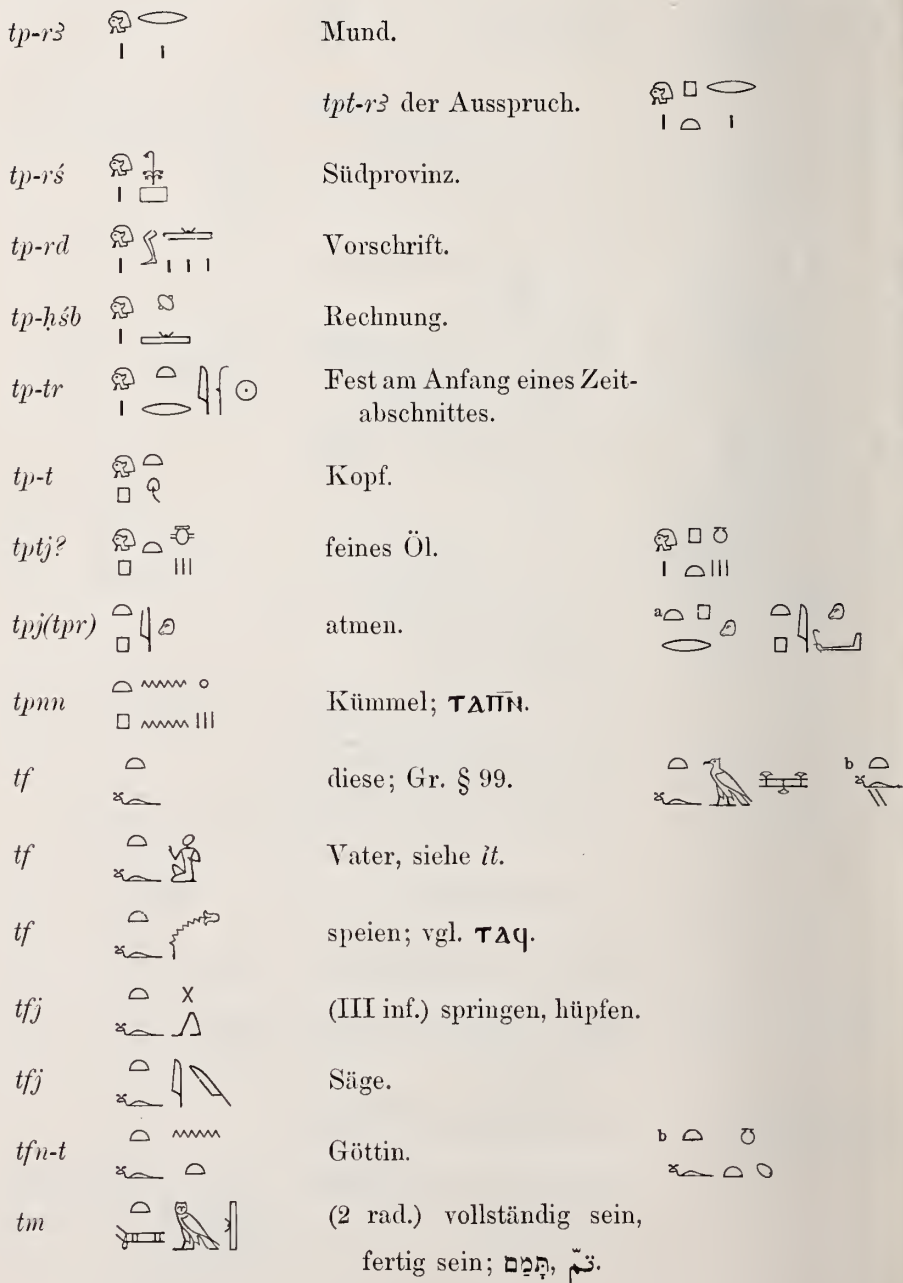 tp-rꜣ Mund.
tpt-rꜣ der Ausspruch.
tp-rś Südprovinz.
tp-rd Vorschrift.
tp-ḥśb Rechnung.
tp-tr Fest am Anfang eines Zeit-
abschnittes.
tp-t Kopf.
tptj? feines Öl.
tpj(tpr) atmen. a
tpnn Kümmel; ⲧⲁⲡⲛ̄.
tf diese; Gr. § 99. b
tf Vater, siehe ỉt.
tf speien; vgl. ⲧⲁϥ.
tfj (III inf.) springen, hüpfen.
tfj Säge.
tfn-t Göttin. b
tm (2 rad.) vollständig sein,
fertig sein; תָּמַם, تمّ.